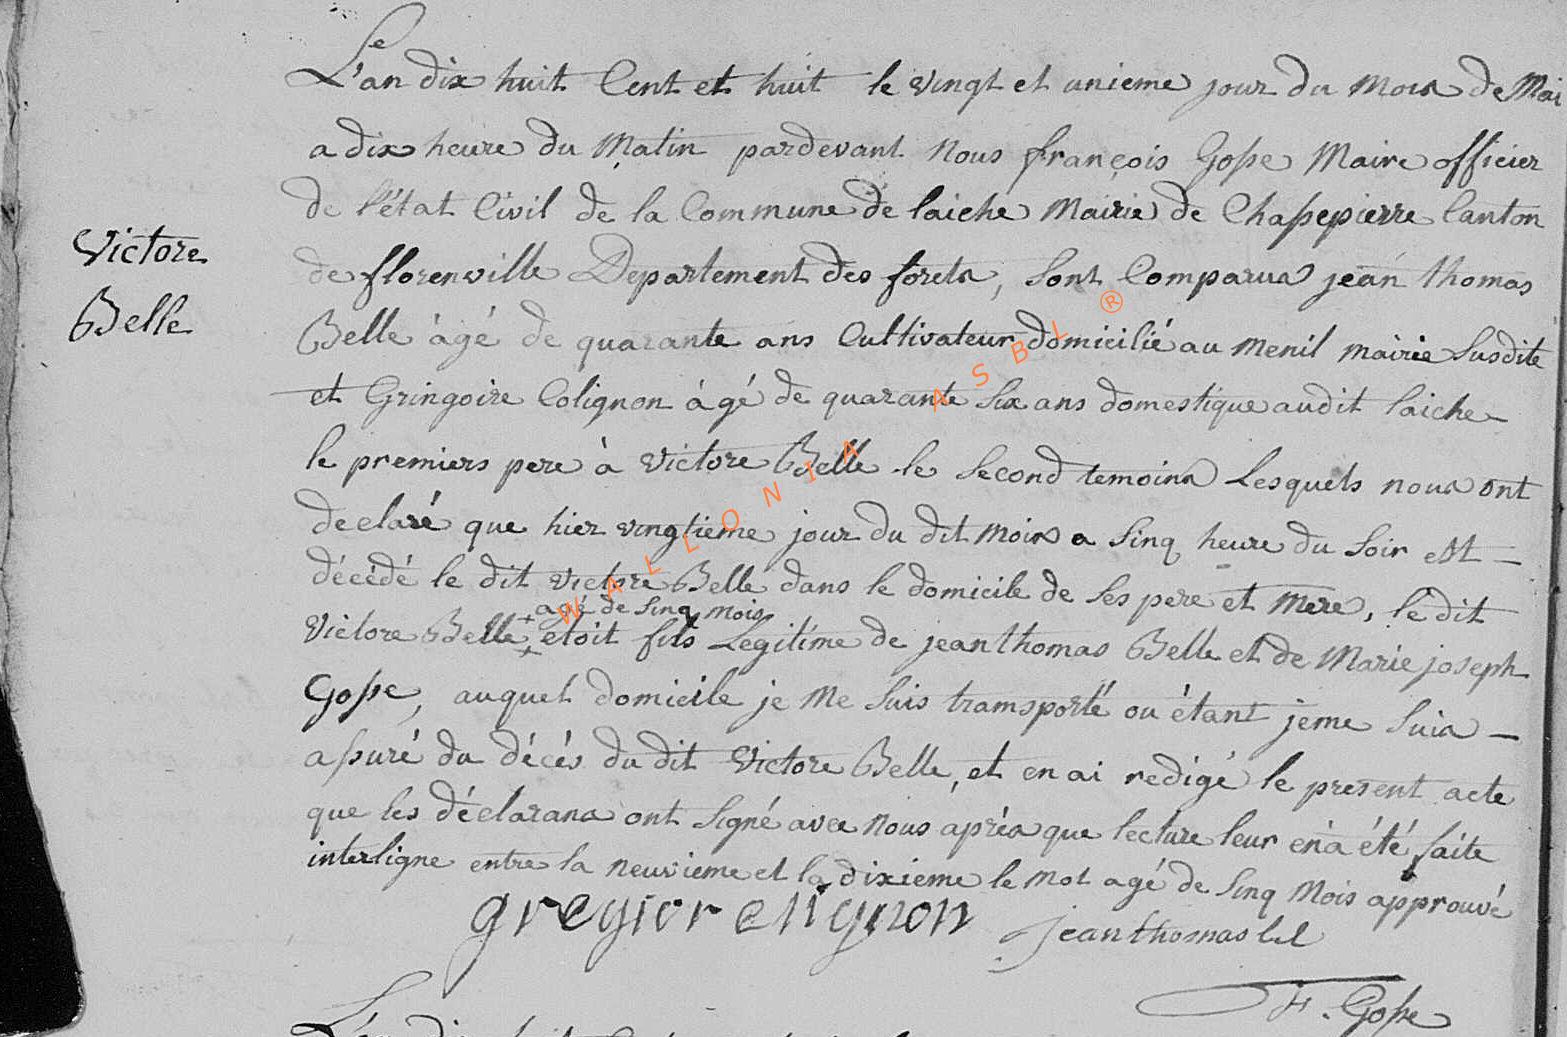 Victore
Belle
L'an dix huit Cent et huit le vingt et unieme jour du Mois de Mai
a dix heure du Matin pardevant Nous françois Gosse Maire officier
de l'état Civil de la Commune de laiche Mairie de Chassepierre Canton
de florenville Departement des forets, sont Comparus jean thomas
Belle âgé de quarante ans Cultivateur domicilié au menil mairie susdite
et Gringoire Colignon âgé de quarante six ans domestique audit laiche
le premiers pere à Victore Belle le second temoins Lesquels nous ont
declaré que hier vingtieme jour du dit mois a sinq heure du soir est
décédé le dit Victore Belle dans le domicile de ses pere et mere, le dit
+ agé de sinq mois
Victore Belle + etoit fils Legitime de jean thomas Belle et de Marie joseph
Gosse, auquel domicile je me suis transporté ou étant je me suis
assuré du décés du dit Victore Belle, et en ai redigé le present acte
que les déclarans ont signé avec nous aprés que lecture leur en a été faite
interligne entre la neuvieme et la dixieme le mot agé de sinq mois approuvé
jean thomas
F. Gosse
WALLONIA ASBL ®